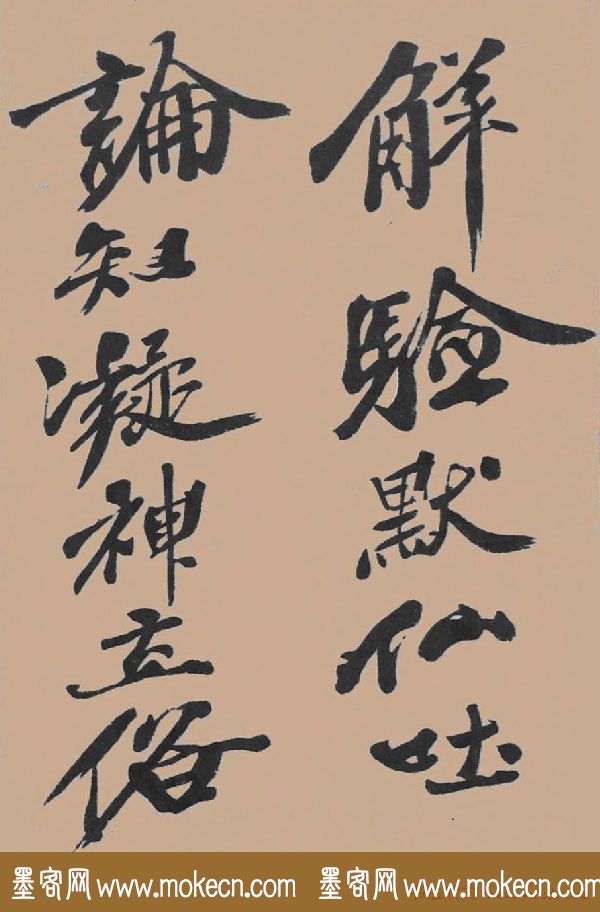 解驗默仙吐
論知凝神立俗
墨客网 www.mokecn.com 墨客网 www.mokecn.com